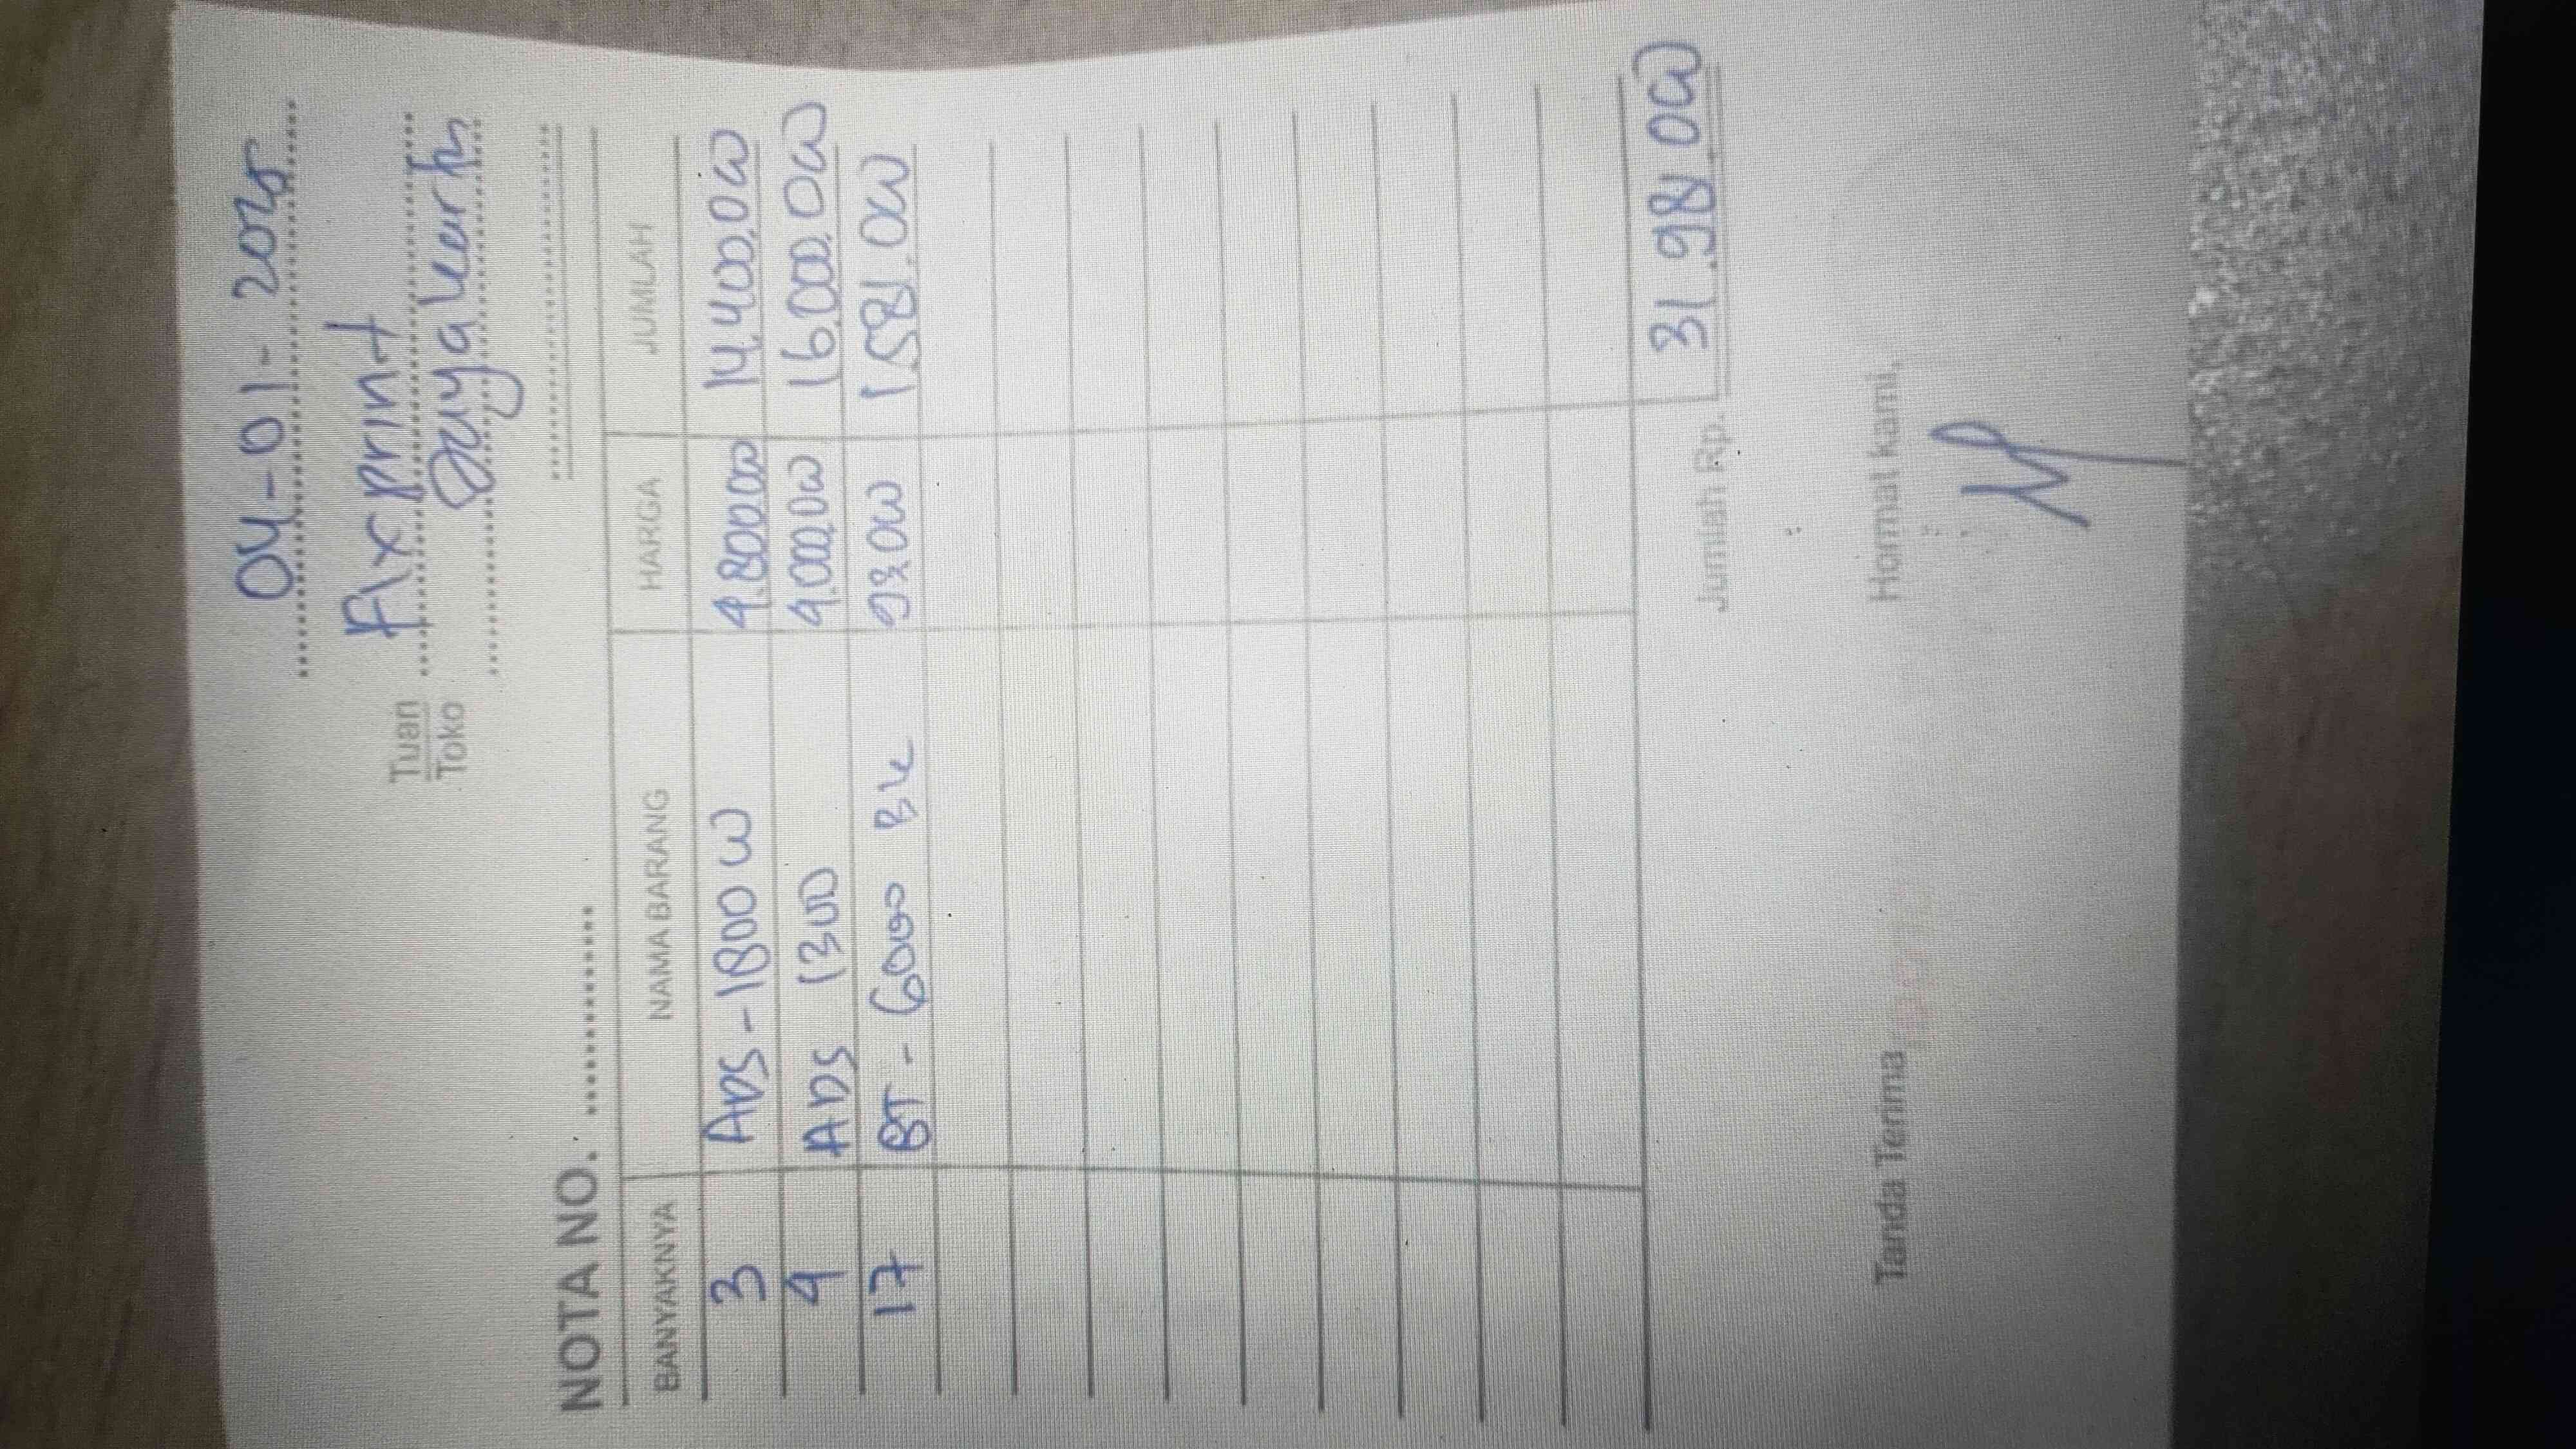 04-01-2025
Tuan Fixprint
Toko Jayakerta
NOTA NO.
BANYAKNYA NAMA BARANG HARGA JUMLAH
3 ADS-1800W 4.800.000 14.400.000
4 ADS 1300 4.000.000 16.000.000
17 BT-6000 BK 93.000 1.581.000
Jumlah Rp. 31.981.000
Tanda Terima Hormat kami,